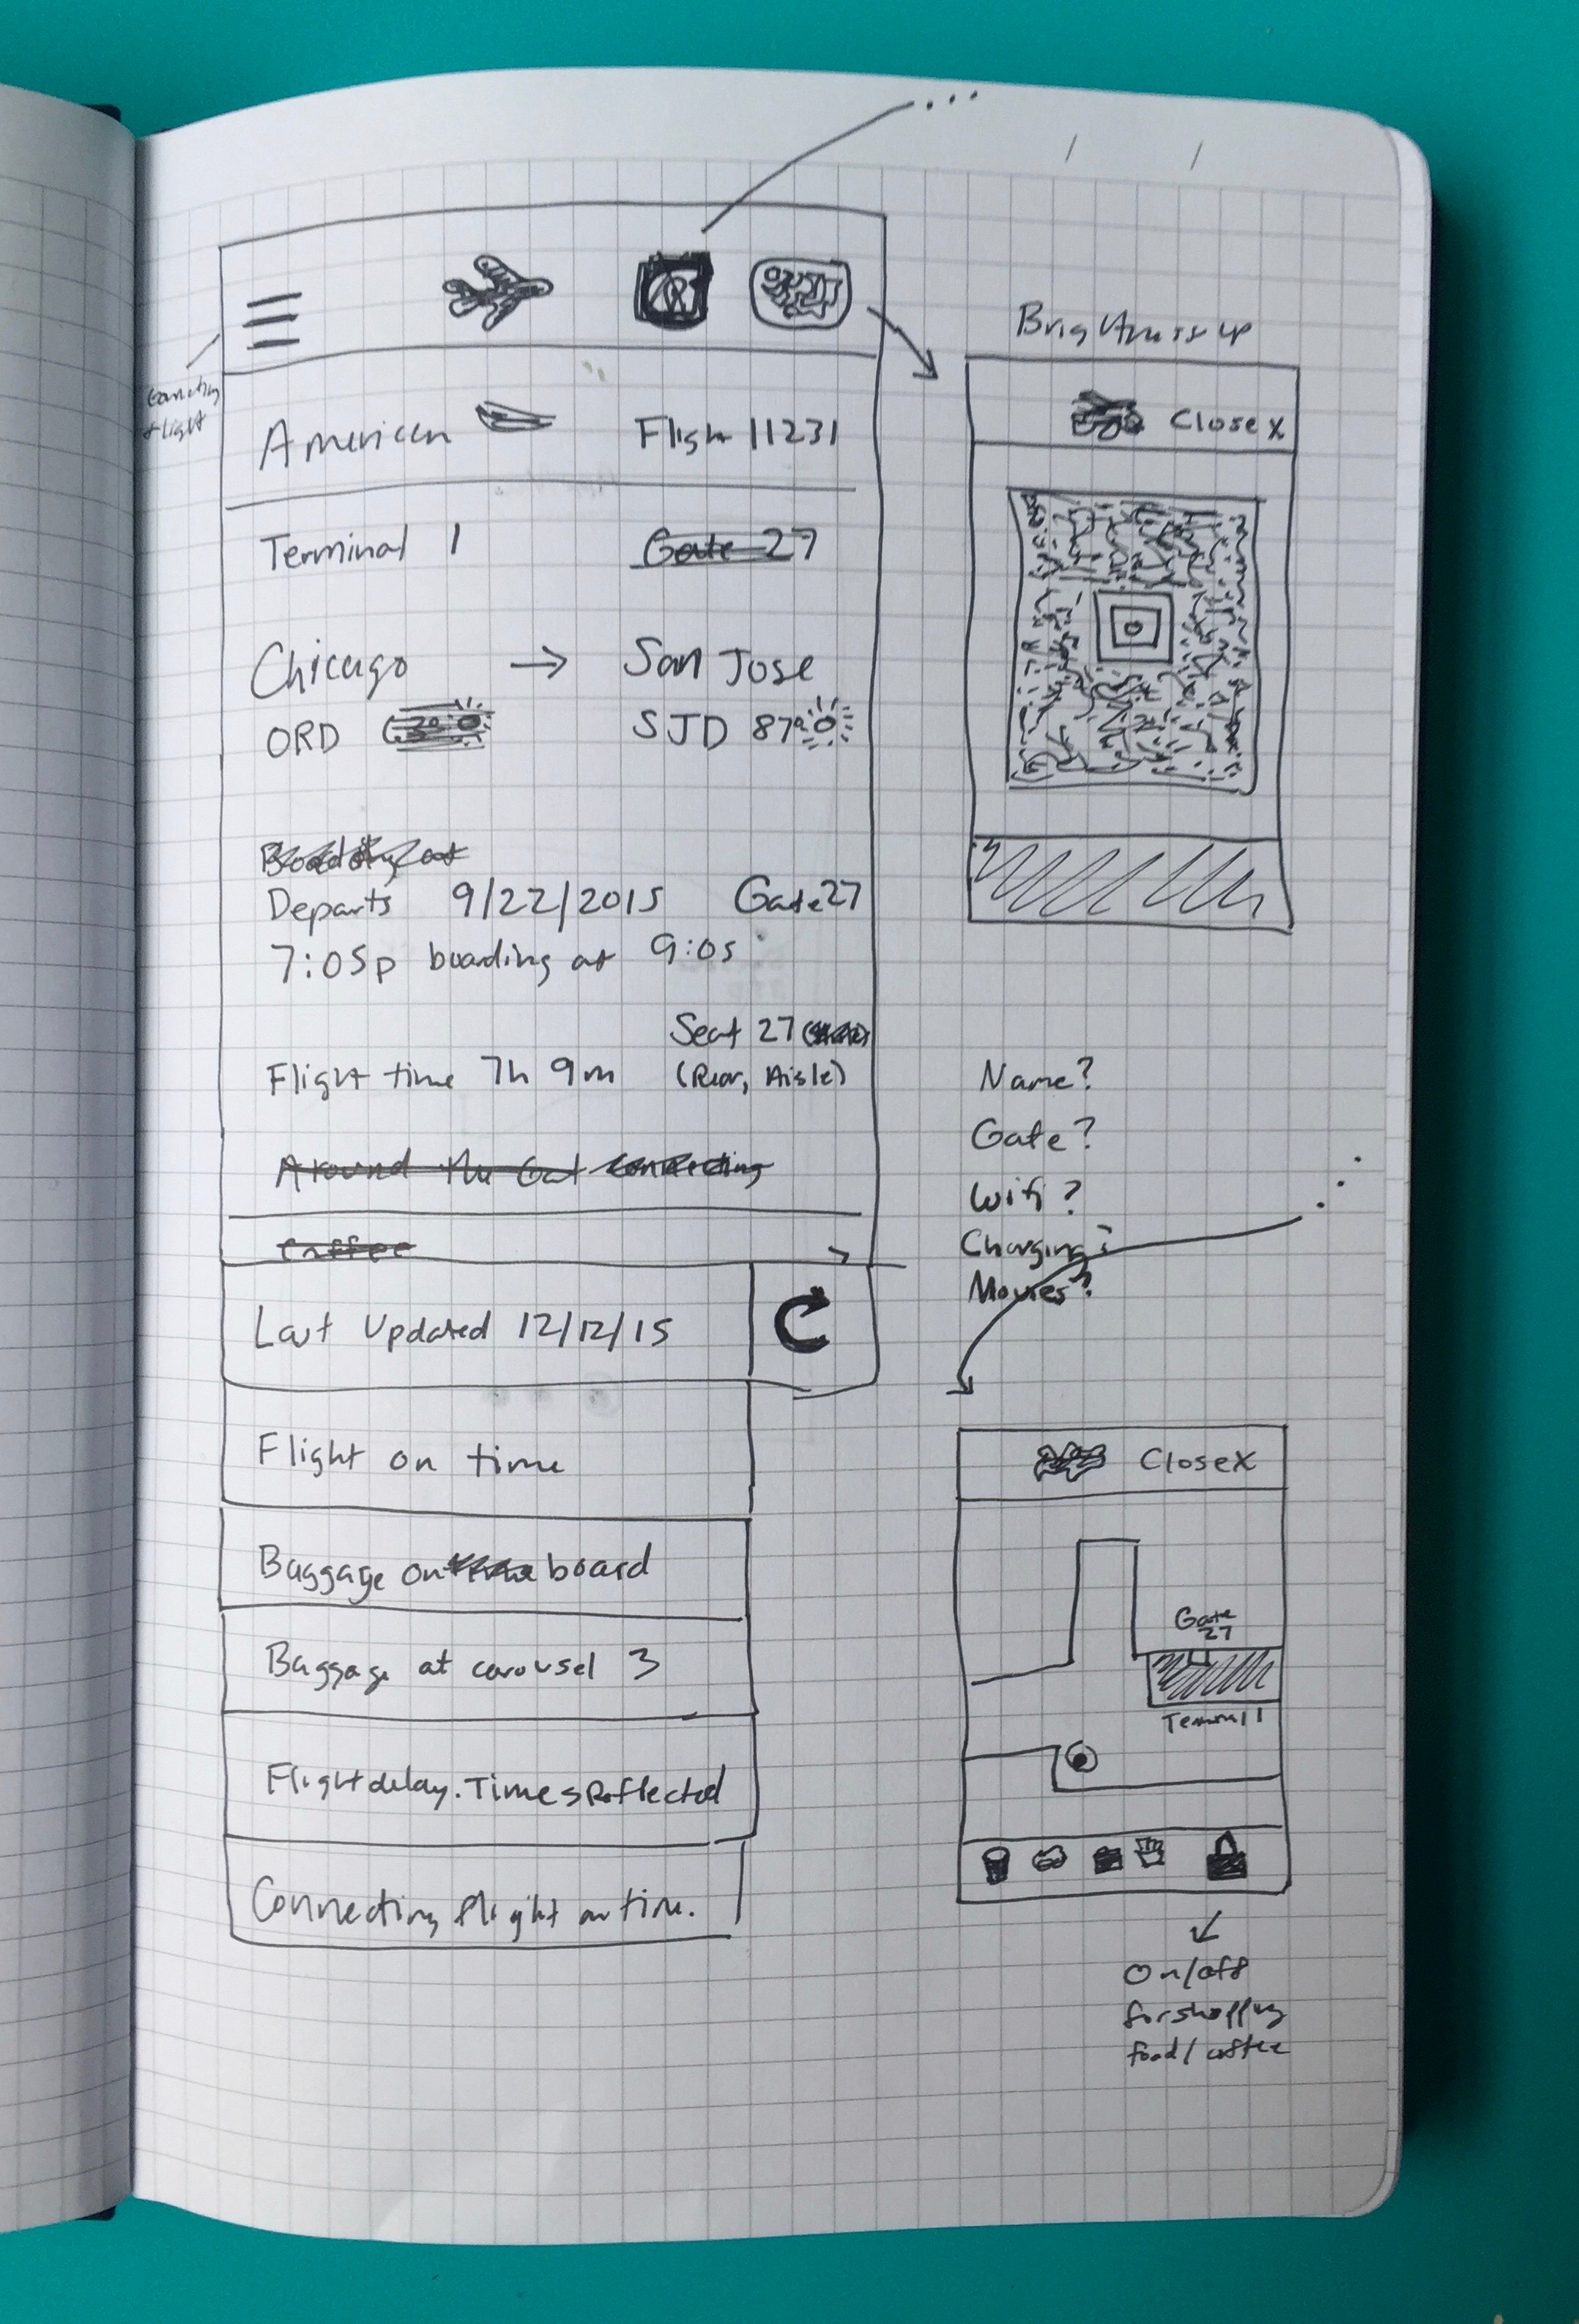 American Flight 11231
Terminal 1 Gate 27
Chicago → San Jose
ORD SJD 87°
Boarding at
Departs 9/22/2015 Gate 27
7:05p boarding at 9:05
Seat 27
Flight time 7h 9m (Rear, Aisle)
Around the Gat connecting
Coffee >
Last Updated 12/12/15
Flight on time
Baggage on board
Baggage at carousel 3
Flight delay. Times Reflected
Connecting flight on time.
flight
Brightness up
Close X
Name?
Gate?
Wifi?
Charging?
Movies?
Close X
Gate
27
Terminal 1
On/off
for shopping
food/coffee